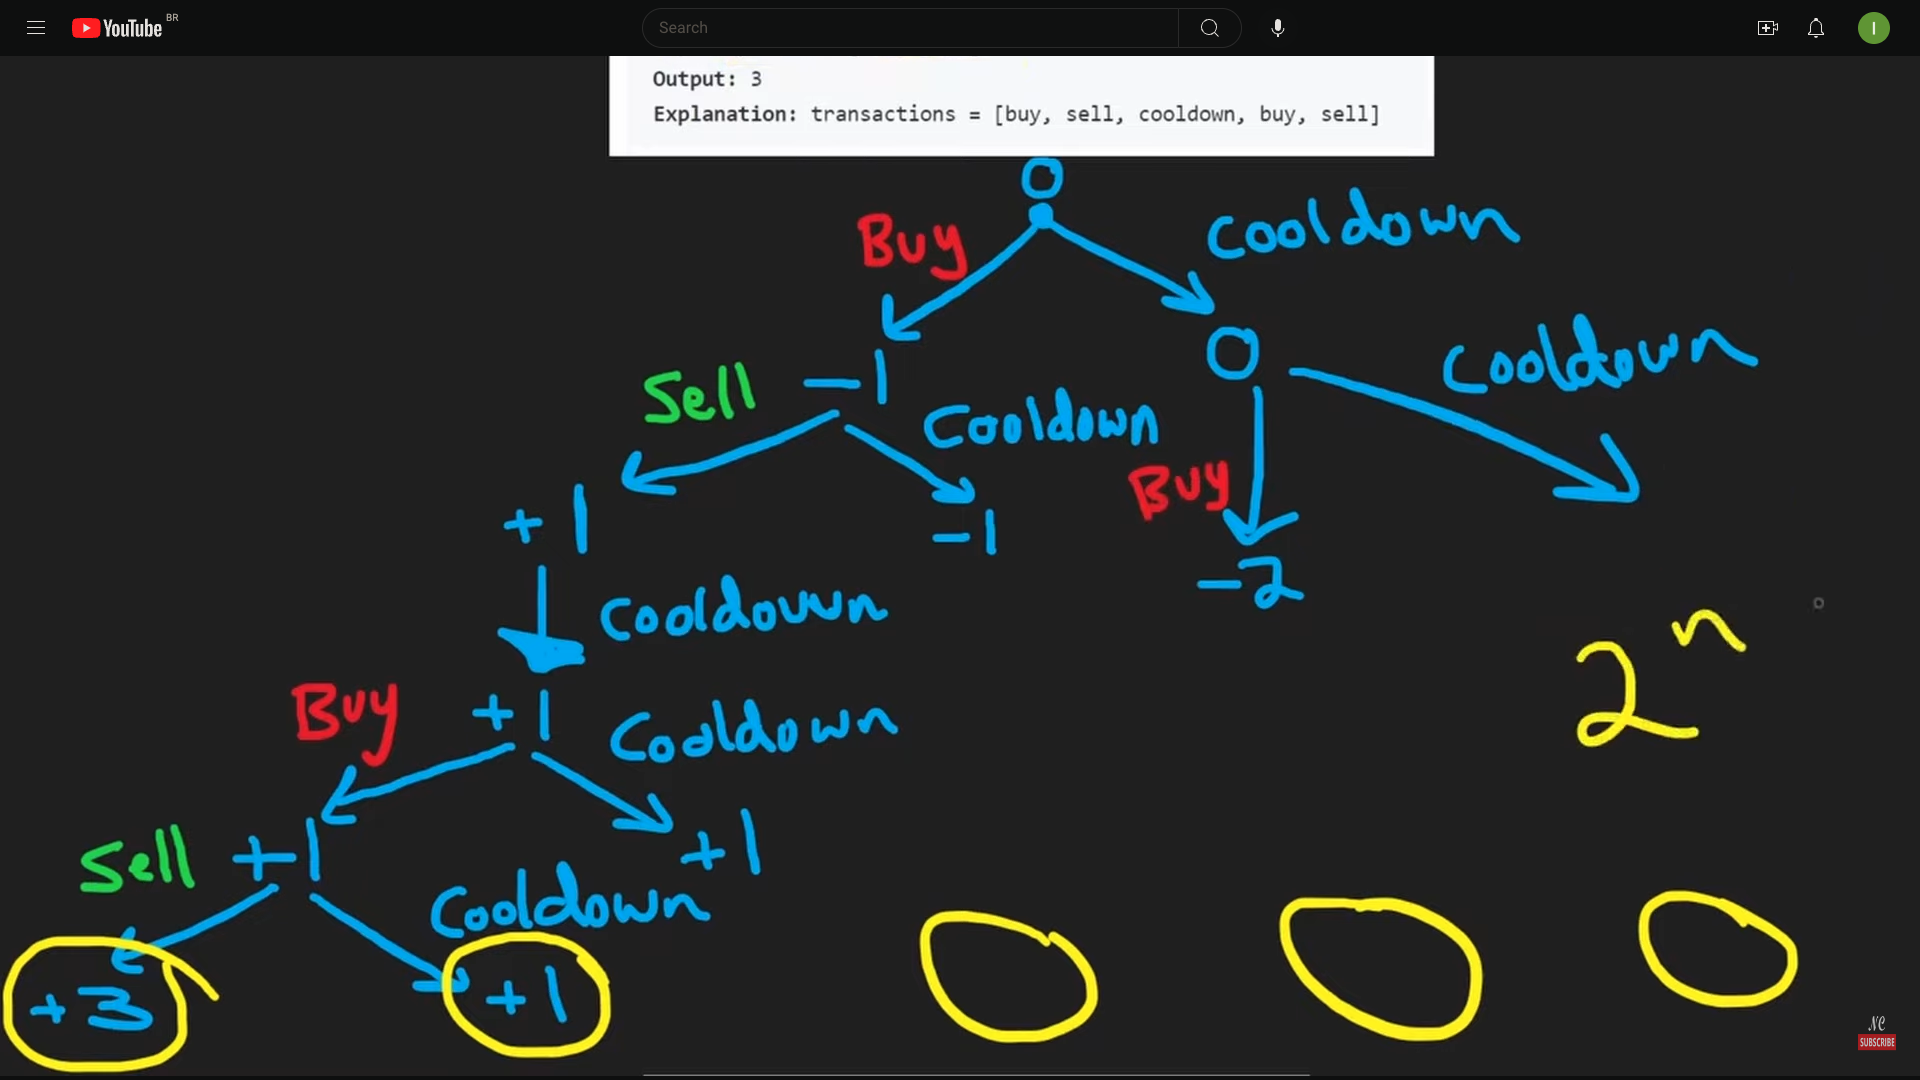 YouTube BR
Search
I
Output: 3
Explanation: transactions = [buy, sell, cooldown, buy, sell]
0
Buy
Cooldown
-1
0
Sell
Cooldown
Cooldown
Buy
+1
-1
-2
Cooldown
2^n
+1
Buy
Cooldown
+1
+1
Sell
Cooldown
+3
+1
NC
SUBSCRIBE